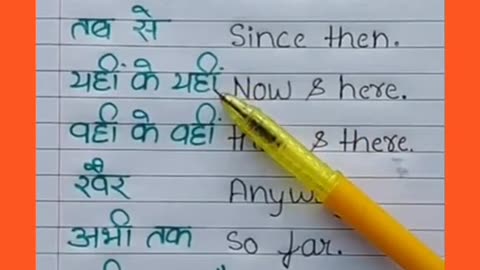 तब से Since then.
यहीं के यहीं Now & here.
वहीं के वहीं & there.
खैर
अभी तक So far.